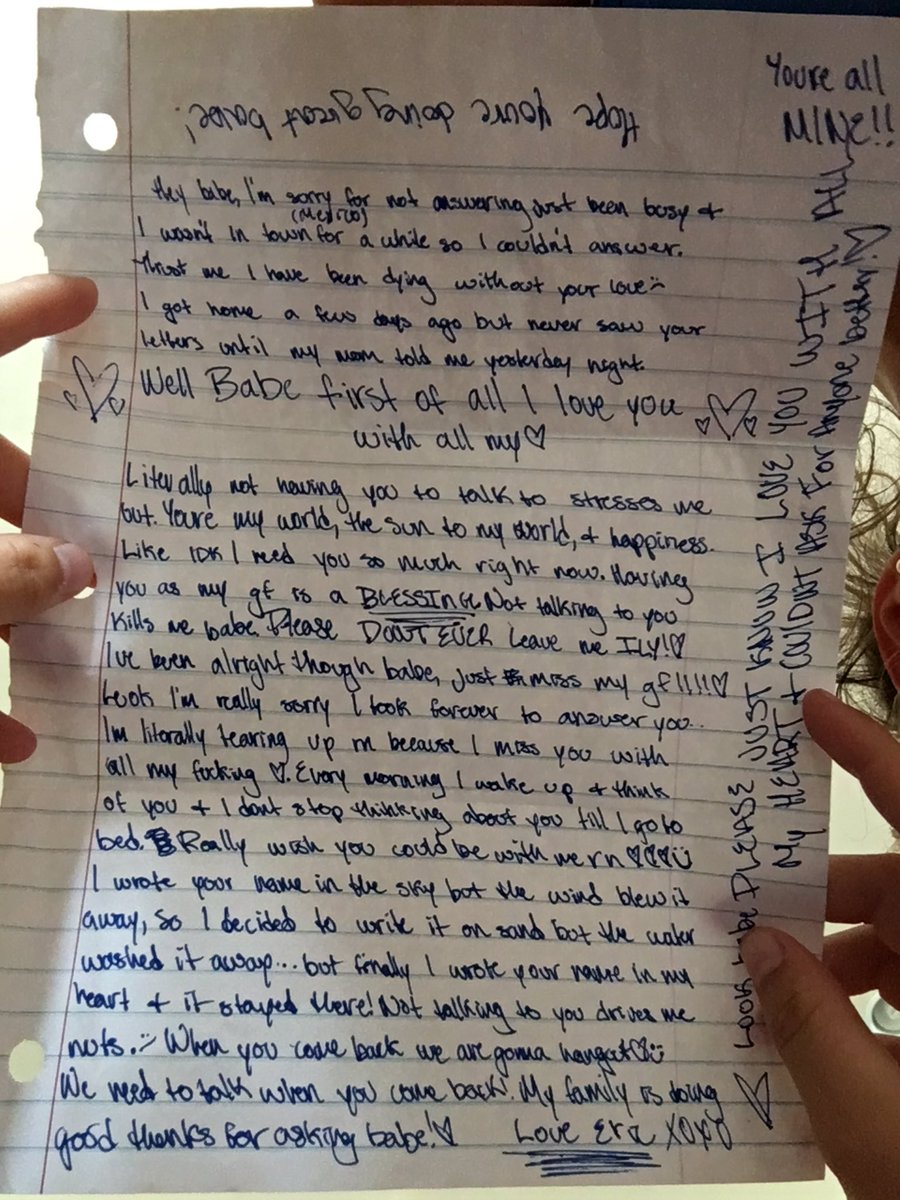 You're all
MINE!!
Hope you're doing great babe!
Hey babe, I'm sorry for not answering just been busy +
(Mexico)
I wasn't in town for a while so I couldn't answer.
Trust me I have been dying without your love :(
I got home a few days ago but never saw your
letters until my mom told me yesterday night.
Well Babe first of all I love you
with all my ♡
Literally not having you to talk to stresses me
out. You're my world, the sun to my world, + happiness.
Like IDK I need you so much right now. Having
you as my gf is a BLESSING. Not talking to you
kills me babe. Please DONT EVER Leave me ILY!♡
I've been alright though babe, just miss my gf!!!!♡
Look I'm really sorry I took forever to answer you..
I'm literally tearing up rn because I miss you with
all my fucking ♡. Every morning I wake up + think
of you + I don't stop thinking about you till I go to
bed. Really wish you could be with me rn ♡♡♡♡ü
I wrote your name in the sky but the wind blew it
away, so I decided to write it on sand but the water
washed it away... but finally I wrote your name in my
heart + it stayed there! Not talking to you drives me
nuts. :) When you come back we are gonna hangout♡ü
We need to talk when you come back! My family is doing
good thanks for asking babe!♡ Love Eric XOXO
Look babe PLEASE JUST KNOW I LOVE YOU WITH ALL
My HEART + COULDNT ASK FOR Anyone better!♡